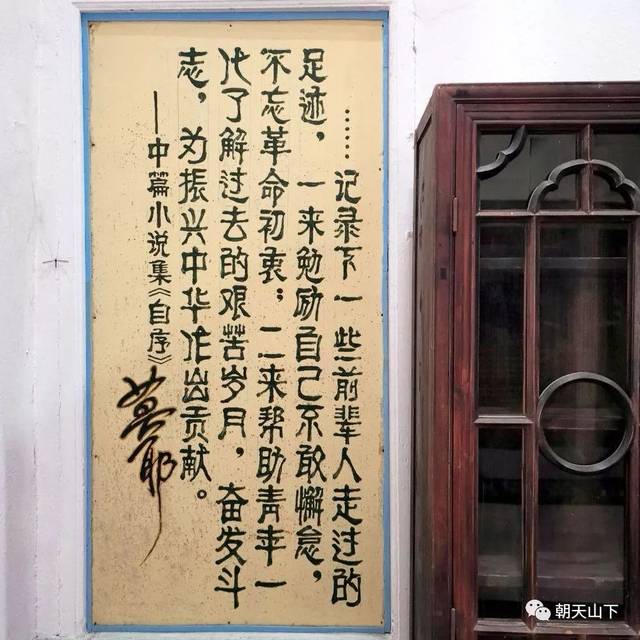 ……记录下一些前辈人走过的
足迹，一来勉励自己不敢懈怠，
不忘革命初衷；二来帮助青年一
代了解过去的艰苦岁月，奋发斗
志，为振兴中华作出贡献。
—中篇小说集《自序》
莫耶
朝天山下